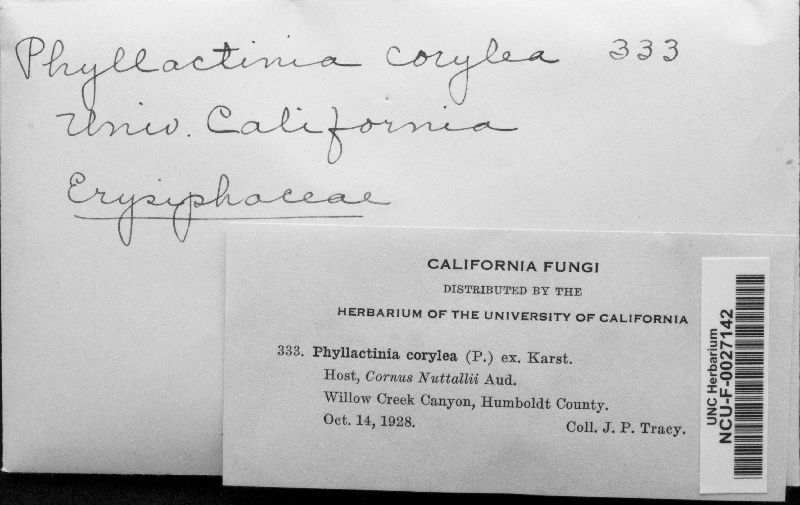 Phyllactinia corylea 333
Univ. California
Erysiphaceae
CALIFORNIA FUNGI
DISTRIBUTED BY THE
HERBARIUM OF THE UNIVERSITY OF CALIFORNIA
333. Phyllactinia corylea (P.) ex. Karst.
Host, Cornus Nuttallii Aud.
Willow Creek Canyon, Humboldt County.
Oct. 14, 1928. Coll. J. P. Tracy.
UNC Herbarium
NCU-F-0027142